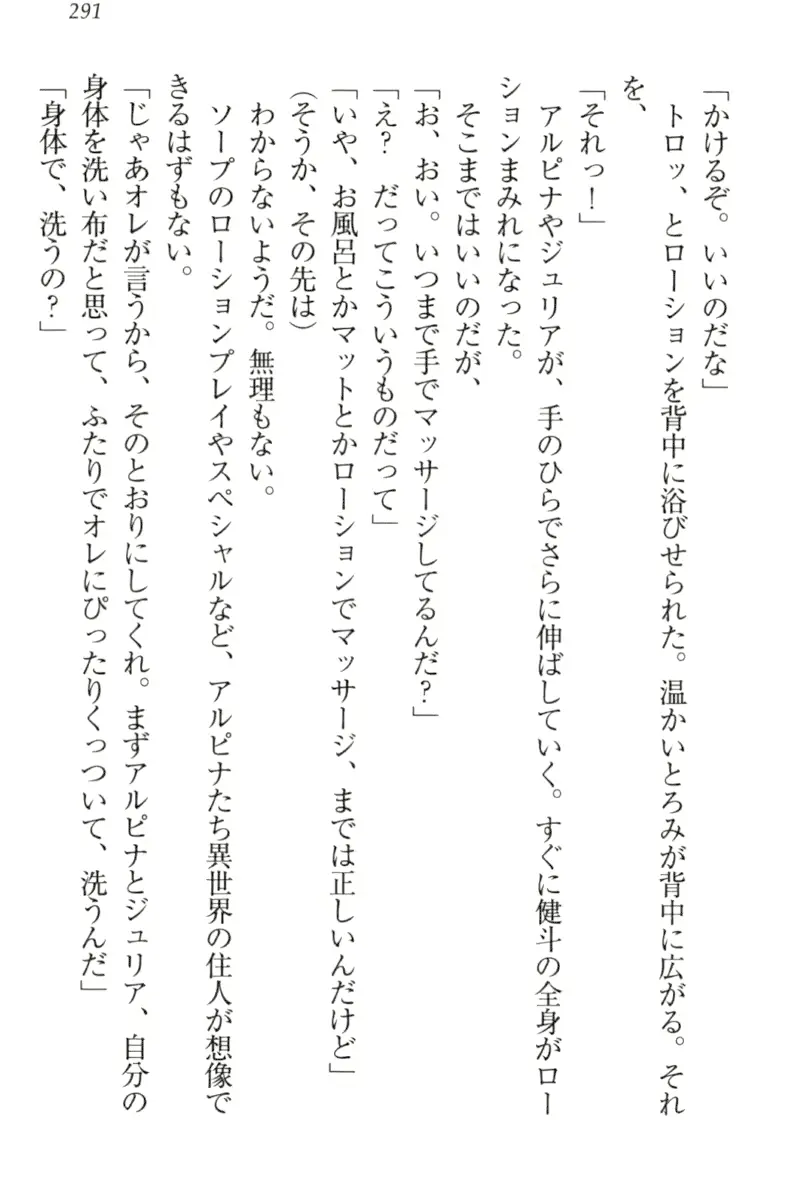 291
「かけるぞ。いいのだな」
　トロッ、とローションを背中に浴びせられた。温かいとろみが背中に広がる。それ
を、
「それっ！」
　アルピナやジュリアが、手のひらでさらに伸ばしていく。すぐに健斗の全身がロー
ションまみれになった。
　そこまではいいのだが、
「お、おい。いつまで手でマッサージしてるんだ？」
「え？　だってこういうものだって」
「いや、お風呂とかマットとかローションでマッサージ、までは正しいんだけど」
（そうか、その先は）
　わからないようだ。無理もない。
　ソープのローションプレイやスペシャルなど、アルピナたち異世界の住人が想像で
きるはずもない。
「じゃあオレが言うから、そのとおりにしてくれ。まずアルピナとジュリア、自分の
身体を洗い布だと思って、ふたりでオレにぴったりくっついて、洗うんだ」
「身体で、洗うの？」